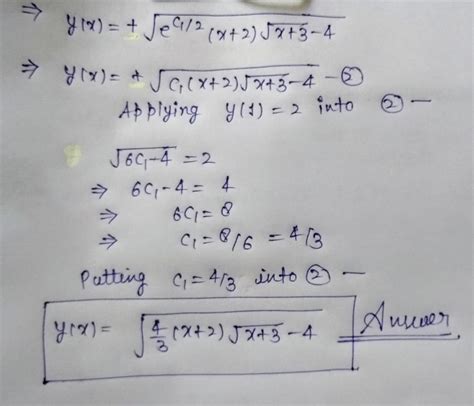 ⇒ y(x) = ± √(e^(C₁/2) (x+2) √(x+3) - 4)
⇒ y(x) = ± √(C₁ (x+2) √(x+3) - 4) — ②
Applying y(1) = 2 into ② —
√(6C₁-4) = 2
⇒ 6C₁-4 = 4
⇒ 6C₁ = 8
⇒ C₁ = 8/6 = 4/3
Putting C₁ = 4/3 into ② —
y(x) = √(4/3 (x+2) √(x+3) - 4) Answer